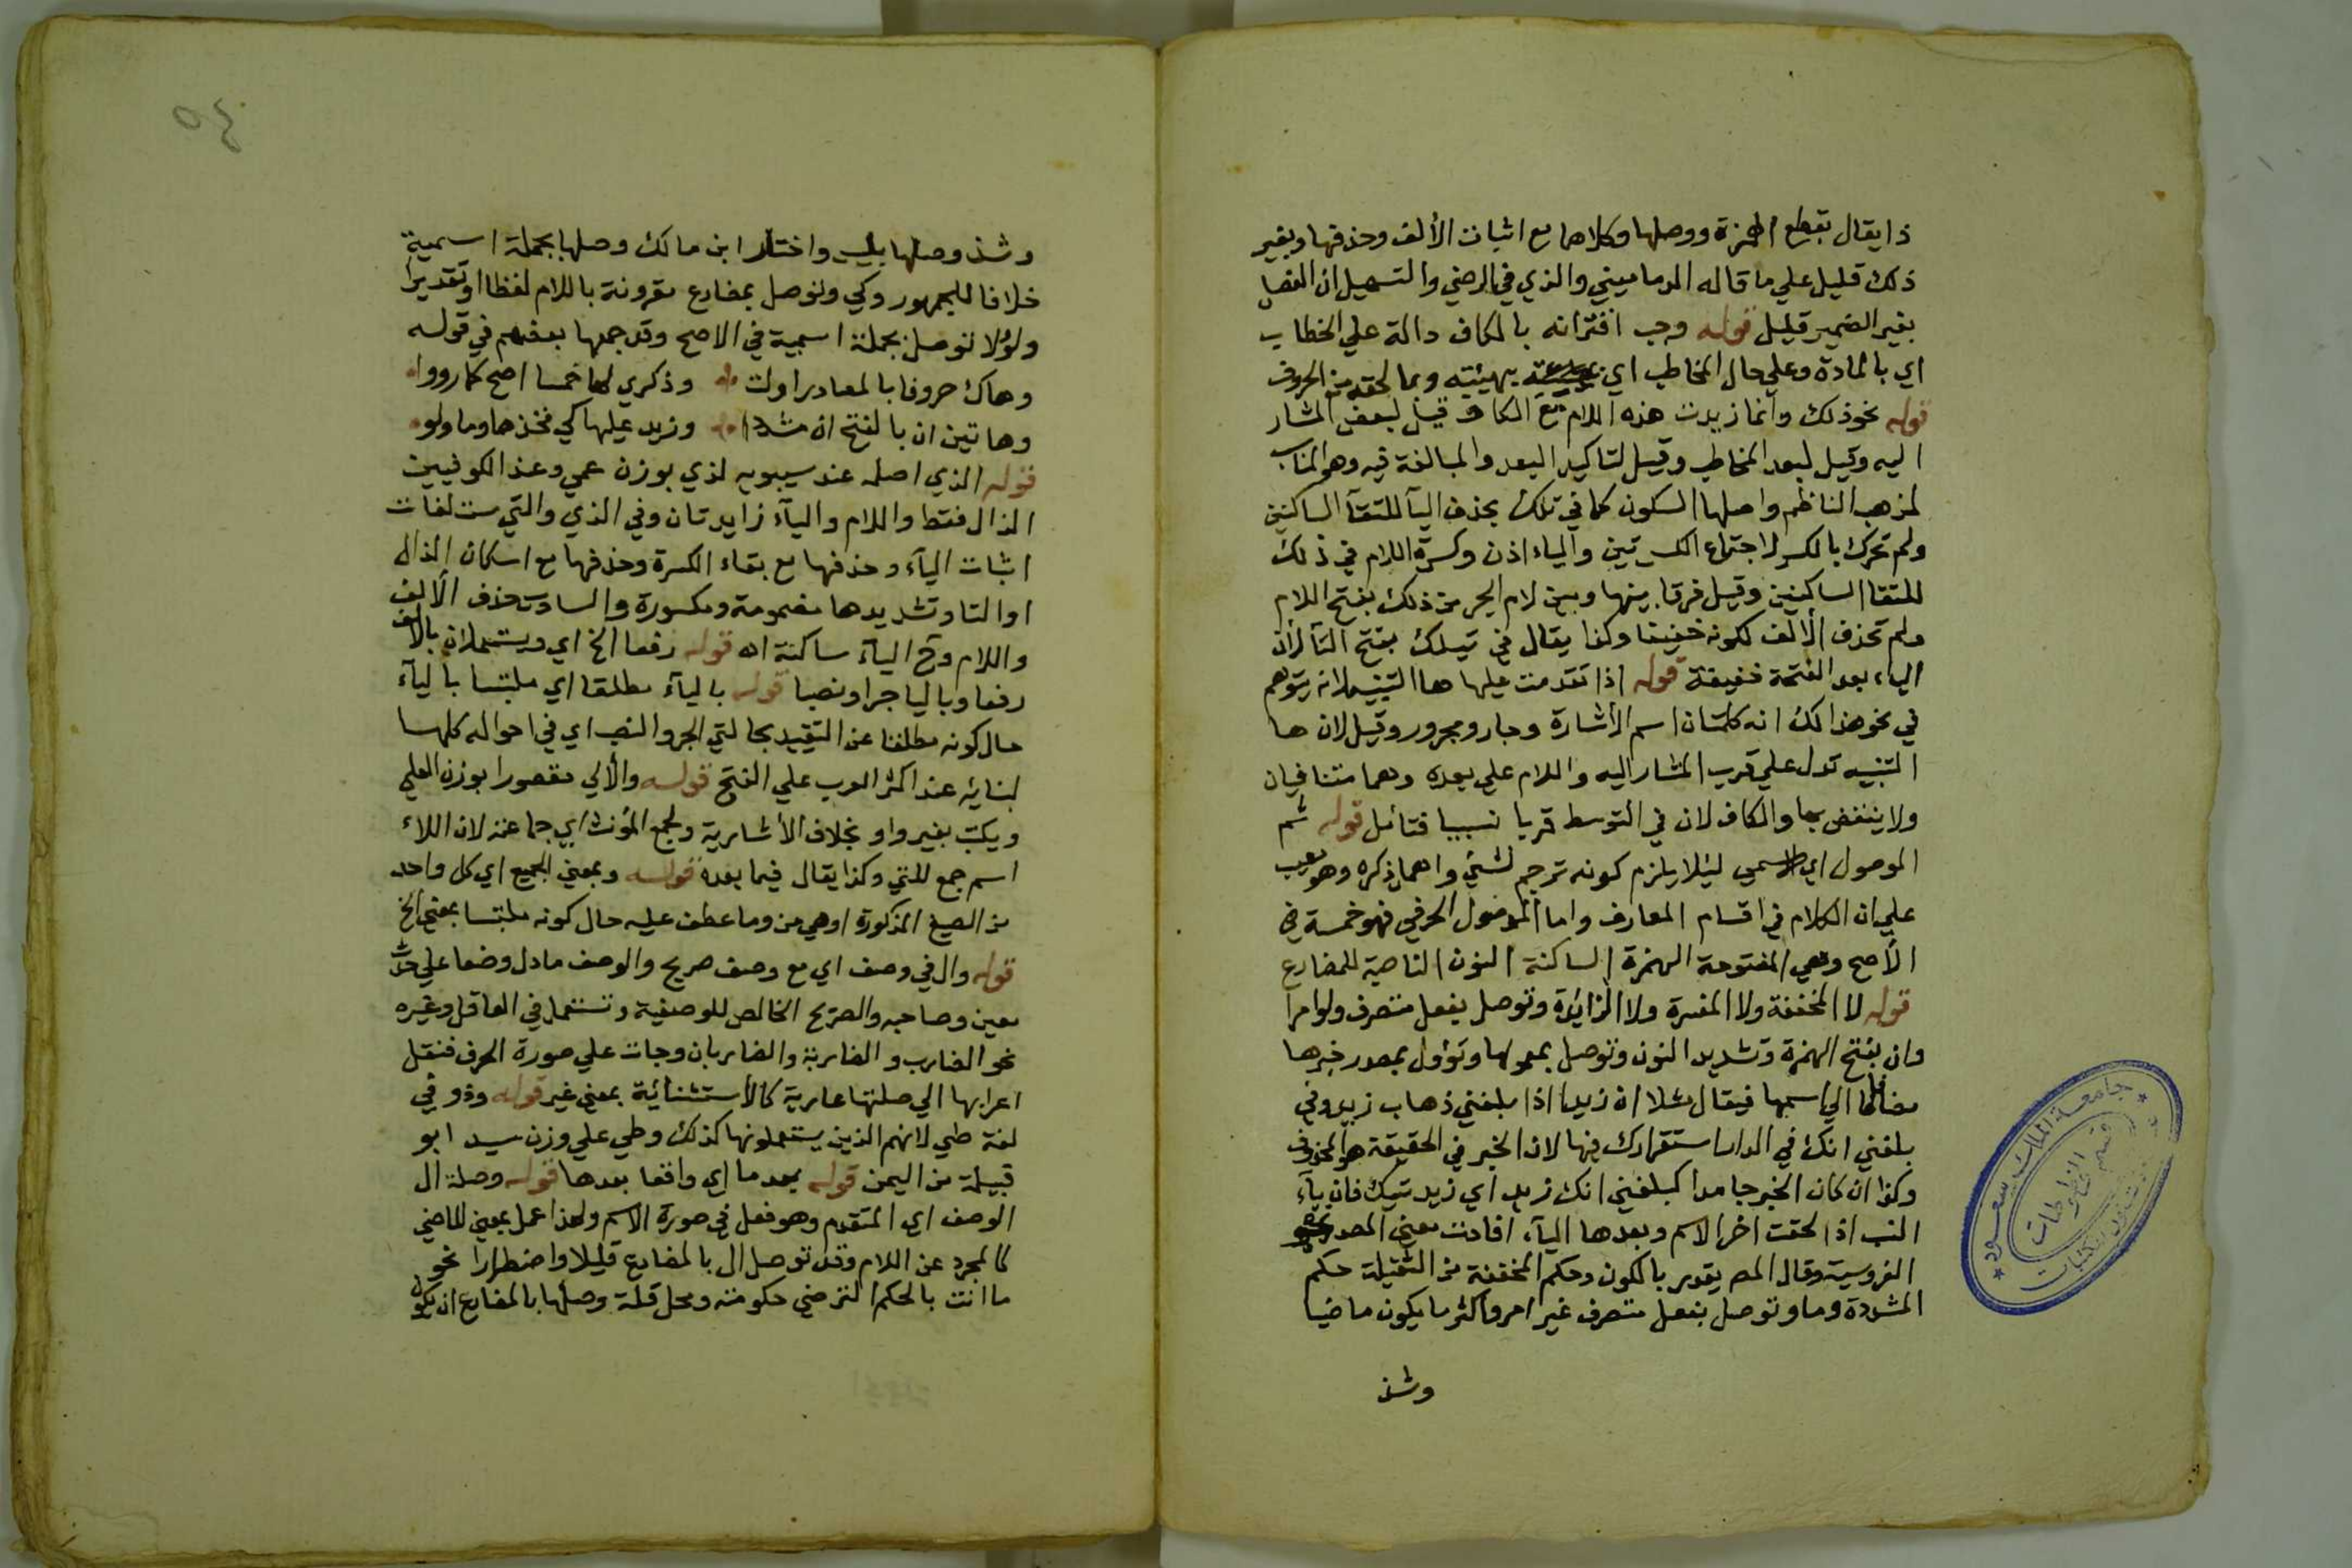 ذا يقال بقطع الهمزة ووصلها وكلاهما مع اثبات الألف وحذفها وبغير
ذلك قليل علي ما قاله الدماميني والذي في الرضي والتسهيل ان الفصل
بغير الضمير قليل قوله وجب اقترانه بالكاف دالة علي الخطاب
اي بالمادة وعلي حال المخاطب اي بهيئته وبما لحقه من الحروف
قوله نحو ذلك وانما زيدت هذه اللام مع الكاف قيل لبعض المشار
اليه وقيل لبعد المخاطب وقيل لتاكيد البعد والمبالغة فيه وهو المناسب
لمذهب الناظم واصلها السكون كما في تلك بحذف اليآ للتقآ الساكنين
ولم تحرك بالكسر لاجتماع الكسرتين والياء اذن وكسرة اللام في ذلك
للتقا الساكنين وقيل فرقا بينها وبين لام الجر من ذلك بفتح اللام
ولم تحذف الألف لكونه خفيفا وكذا يقال في تيلك بفتح التآ لأن
الياء بعد الفتحة خفيفة قوله اذا تقدمت عليها ها التنبيه لانه يتوهم
في نحو هذا لك انه كلمتان اسم الأشارة وجار ومجرور وقيل لان ها
التنبيه تدل علي قرب المشار اليه واللام علي بعده وهما متنافيان
ولا ينتقض بها والكاف لان في التوسط قربا نسبيا فتأمل قوله ثم
الموصول اي الاسمي ليلا يلزم كونه ترجم لشئ واهمل ذكره وهو معيب
علي ان الكلام في اقسام المعارف واما الموصول الحرفي فهو خمسة في
الأصح وهي المفتوحة الهمزة الساكنة النون الناصبة للمضارع
قوله لا المخففة ولا المفسرة ولا الزايدة وتوصل بفعل متصرف ولو امرا
وان بفتح الهمزة وتشديد النون وتوصل بمعمولها وتؤول بمصدر خبرها
مضافا الي اسمها فيقال مثلا ان زيدا اذا بلغني ذهاب زيد وفي
بلغني انك في الدار استقرارك فيها لان الخبر في الحقيقة هو المحذوف
وكذا ان كان الخبر جامدا كبلغني انك زيد اي زيديتك فان يآء
النسب اذا لحقت اخر الاسم وبعدها التآء افادت معني المصدر نحو
الفروسية وقال المص يقدر بالكون وحكم المخففة من الثقيلة حكم
المشددة وما وتوصل بفعل متصرف غير امر واكثر ما يكون ماضيا
وشذ
٥٤
وشذ وصلها بليس واختار ابن مالك وصلها بجملة اسمية
خلافا للجمهور وكي وتوصل بمضارع مقرونة باللام لفظا او تقديرا
ولو ولا توصل بجملة اسمية في الاصح وقد جمعها بعضهم في قوله
وهاك حروفا بالمصادر اولت وذكري لها خمسا اصح كما رووا
وهاتين ان بالفتح ان مشددا وزيد عليها كي فخذها وما ولو
قوله الذي اصله عند سيبويه لذي بوزن عمي وعند الكوفيين
الذال فقط واللام واليآء زايدتان وفي الذي والتي ست لغات
اثبات اليآء وحذفها مع بقاء الكسرة وحذفها مع اسكان الذال
او التا وتشديدها مضمومة ومكسورة والسادسة حذف الألف
واللام وتخ اليآء ساكنة اه قوله رفعا الخ اي ويستعملان بالألف
رفعا وباليا جرا ونصبا قوله باليآء مطلقا اي ملتبسا باليآء
حال كونه مطلقا عن التقييد بحالتي الجر والنصب اي في احواله كلها
لبنائه عند اكثر العرب علي الفتح قوله والألي مقصورا بوزن العلي
ويكتب بغير واو بخلاف الأشارية ولجمع المؤنث اي جماعته لان اللاء
اسم جمع للتي وكذا يقال فيما بعده قوله وبمعني الجميع اي كل واحد
من الصيغ المذكورة اوهي من وما عطف عليه حال كونه ملتبسا بمعني الخ
قوله وال في وصف اي مع وصف صريح والوصف ما دل وضعا علي حدث
معين وصاحبه والصريح الخالص للوصفية وتستعمل في العاقل وغيره
نحو الضارب والضاربة والضاربان وجات علي صورة الحرف فنقل
اعرابها الي صلتها عارية كالأستثنائية بمعني غير قوله وذو في
لغة طي لانهم الذين يستعملونها كذلك وطي علي وزن سيد ابو
قبيلة من اليمن قوله بعد ما اي واقعا بعدها قوله وصلة ال
الوصف اي المتقدم وهو فعل في صورة الاسم ولهذا عمل بمعني الماضي
كالمجرد عن اللام وقد توصل ال بالمضارع قليلا واضطرارا نحو
ما انت بالحكم الترضي حكومته ومحل قلة وصلها بالمضارع ان يكون
جامعة الملك سعود
قسم المخطوطات